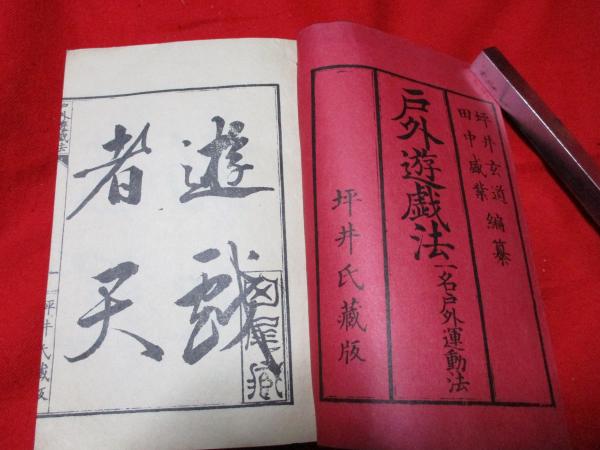 坪井玄道
田中盛業
編纂
戶外遊戯法
一名戶外運動法
坪井氏藏版
遊戯
者天
戶外遊戯法
一
坪井氏藏版